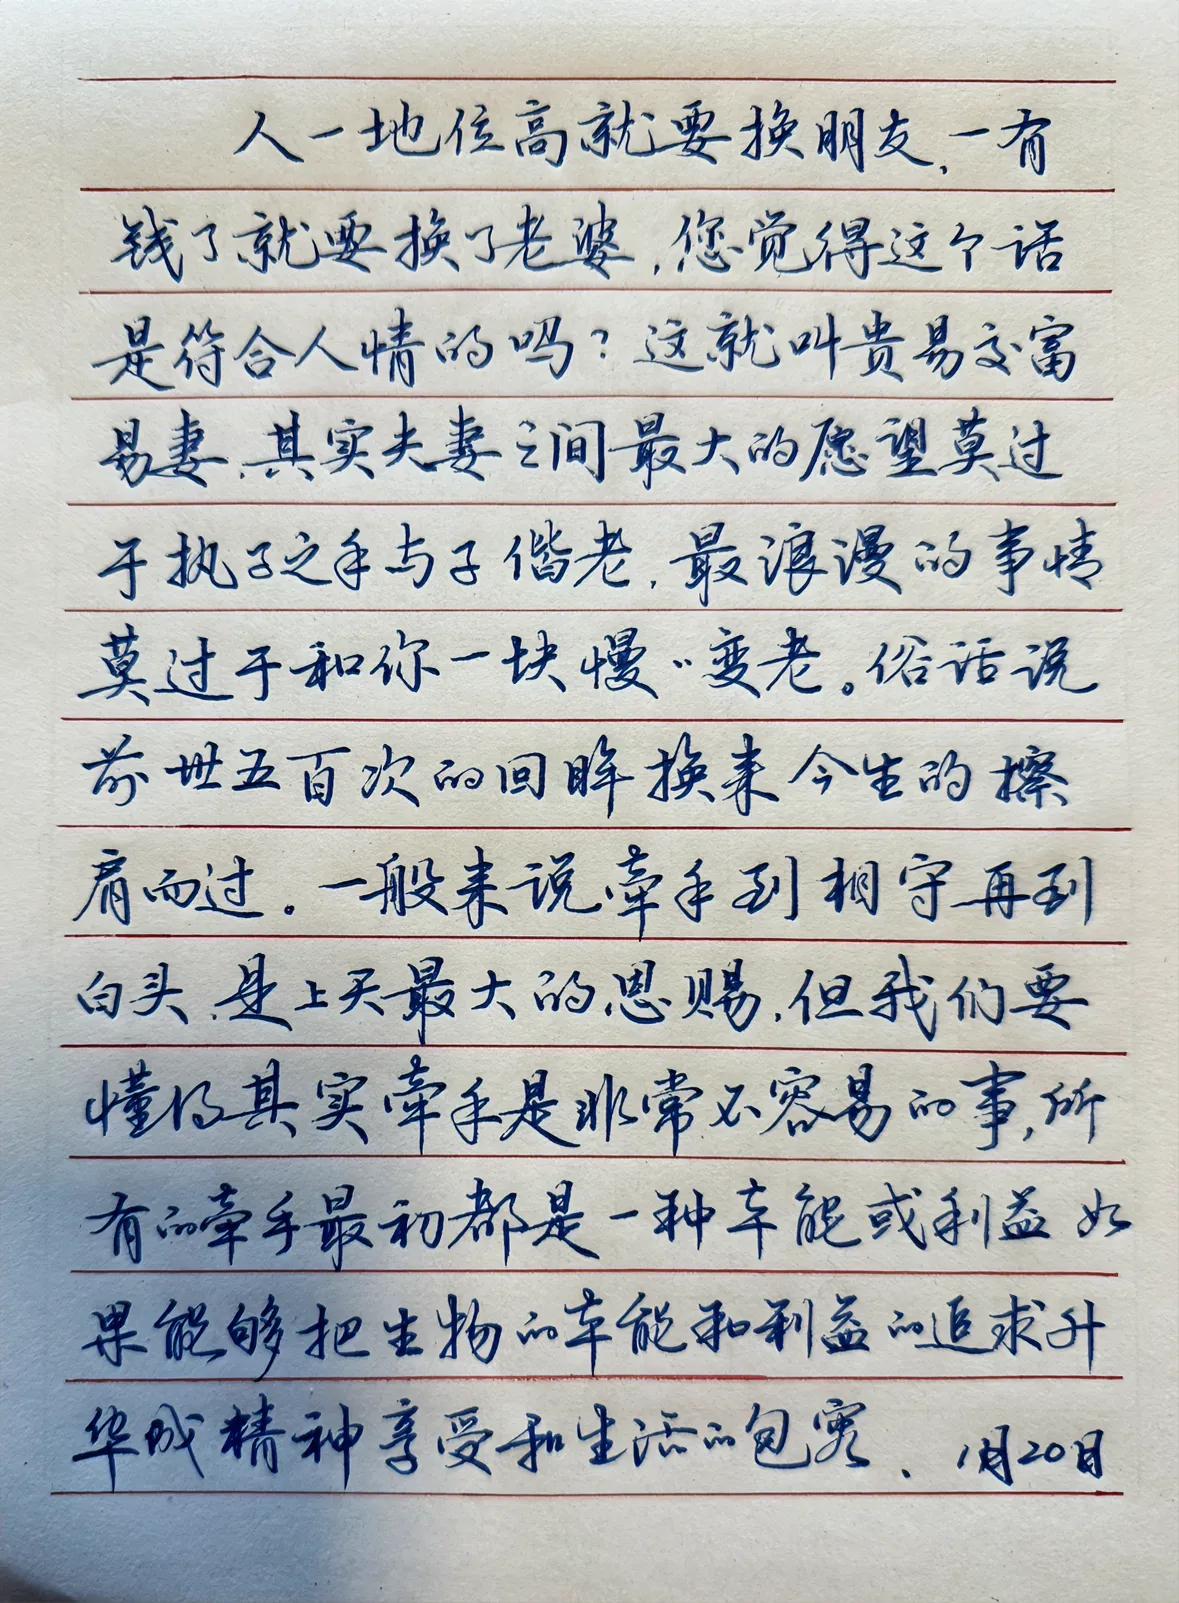 人一地位高就要换朋友，一有
钱了就要换了老婆，您觉得这个话
是符合人情的吗？这就叫贵易交富
易妻，其实夫妻之间最大的愿望莫过
于执子之手与子偕老，最浪漫的事情
莫过于和你一块慢〃变老。俗话说
前世五百次的回眸换来今生的擦
肩而过。一般来说牵手到相守再到
白头，是上天最大的恩赐，但我们要
懂得其实牵手是非常不容易的事，所
有的牵手最初都是一种本能或利益如
果能够把生物的本能和利益的追求升
华成精神享受和生活的包容、1月20日